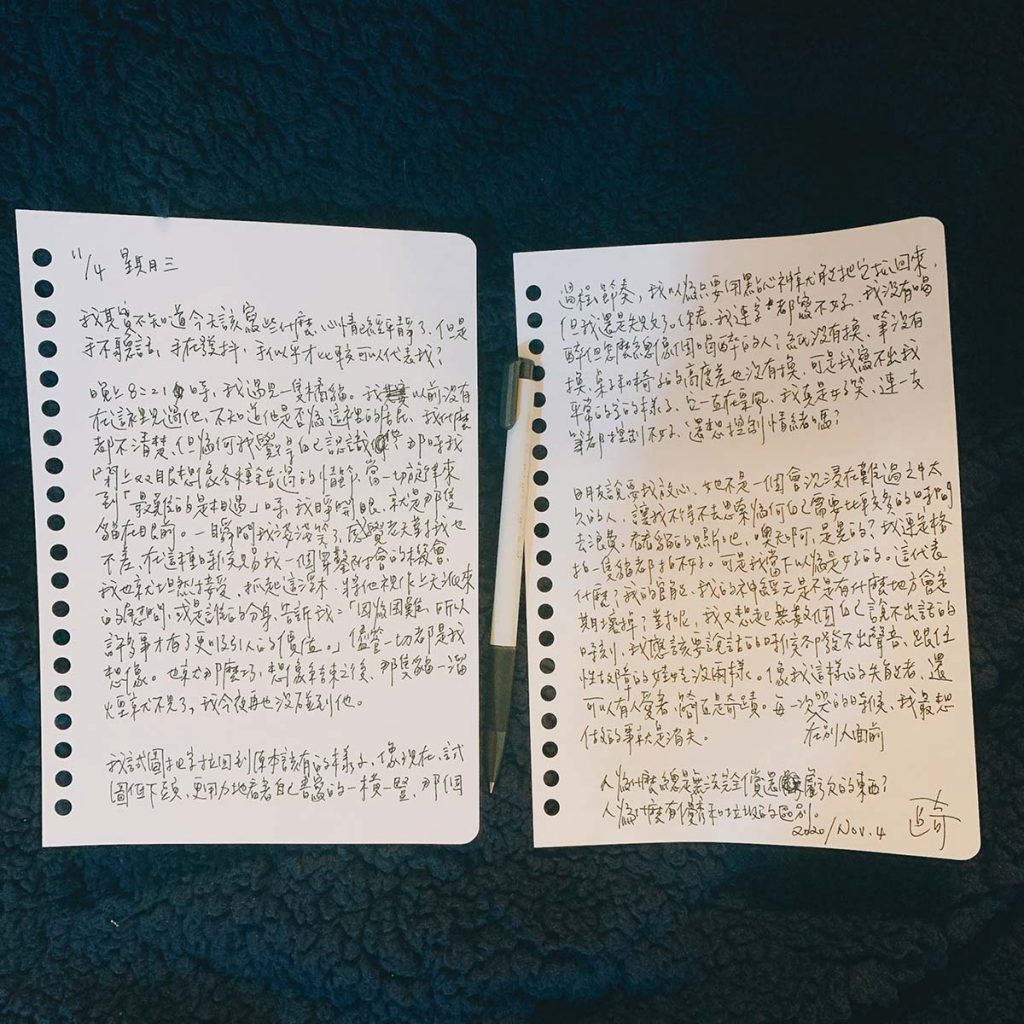 11/4 星期三
我其實不知道今天該寫些什麼,心情總算平靜了,但是
手不聽話,手在發抖,手似乎才比較可以代表我?
晚上8:21時,我遇見一隻橘貓。我以前沒有
在這裡見過他,不知道他是否為這裡的居民,我什麼
都不清楚,但為何我覺得自己認識你?那時我
閉上双眼想像各種錯過的情節,當一切旋轉來
到「最美的是相遇」時,我睜開眼,就是那隻
貓在眼前。一瞬間我淺淺笑了,感覺老天對我也
不差,在這種時候
我也就坦然接受,抓起這浮木,將他視作上天派來
的慰問,或是誰的分身,告訴我:「因為困難,所以
許多事才有了更吸引人的價值。」儘管一切都是我
想像。也就那麼巧,想像結束之後,那隻貓一溜
煙就不見了,我今夜再也沒碰到他。
我試圖把字拉回到原本該有的樣子,像現在,試
圖低下頭,更用力地看著自己書寫的一橫一豎,那個
過程節奏,我以為只要用點心神就
但我還是失敗了。你看,我連字都寫不好,我沒有喝
醉但怎麼總像個喝醉的人?紙沒有換,筆沒有
換,桌子和椅子的高度差也沒有換,可是我寫不出我
平常的字的樣子,它一直在
我真是好笑,連一支
筆都控制不好,還想控制情緒嗎?
朋友說要我放心,她不是一個會沉浸在難過之中太
久的人,讓我不得不去思索為何自己需要比較多的時間
去浪費。看看貓的照片吧,噢天啊,是黑的?我連是橘
拍一隻貓都拍不好。可是我當下以為是好的。這代表
什麼?我的官能、我的神經元是不是有什麼地方會定
期壞掉?對於呢,我又想起無數個自己說不出話的
時刻,我應該要說話的時候卻發不出聲音,跟任
性故障的娃娃沒兩樣。像我這樣的失能者,還
可以有人愛著,簡直是奇蹟。每一次哭的時候,我最想
做的事就是消失。
在別人面前
人為什麼總是無法完全償還虧欠的東西?
人為什麼有優秀和垃圾的區別。
2020/Nov.4